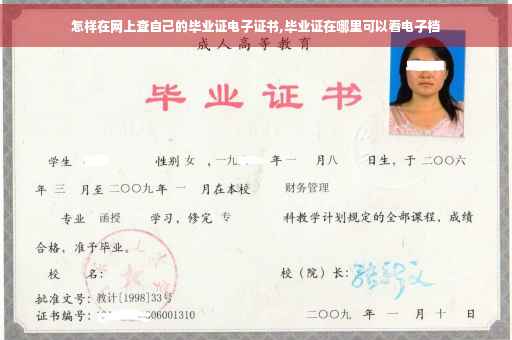 怎样在网上查自己的毕业证电子证书,毕业证在哪里可以看电子档
成人高等教育
毕业证书
学生 性别 女 ,一九 年一 月八 日生,于二〇〇六
年 三 月至二〇〇九年 一 月在本校 财务管理
专业 函授 学习,修完 专 科教学计划规定的全部课程,成绩
合格,准予毕业。
校 名: 校(院)长:
批准文号:教计[1998]33号
证书编号: 06001310 二〇〇九 年 一 月 十 日